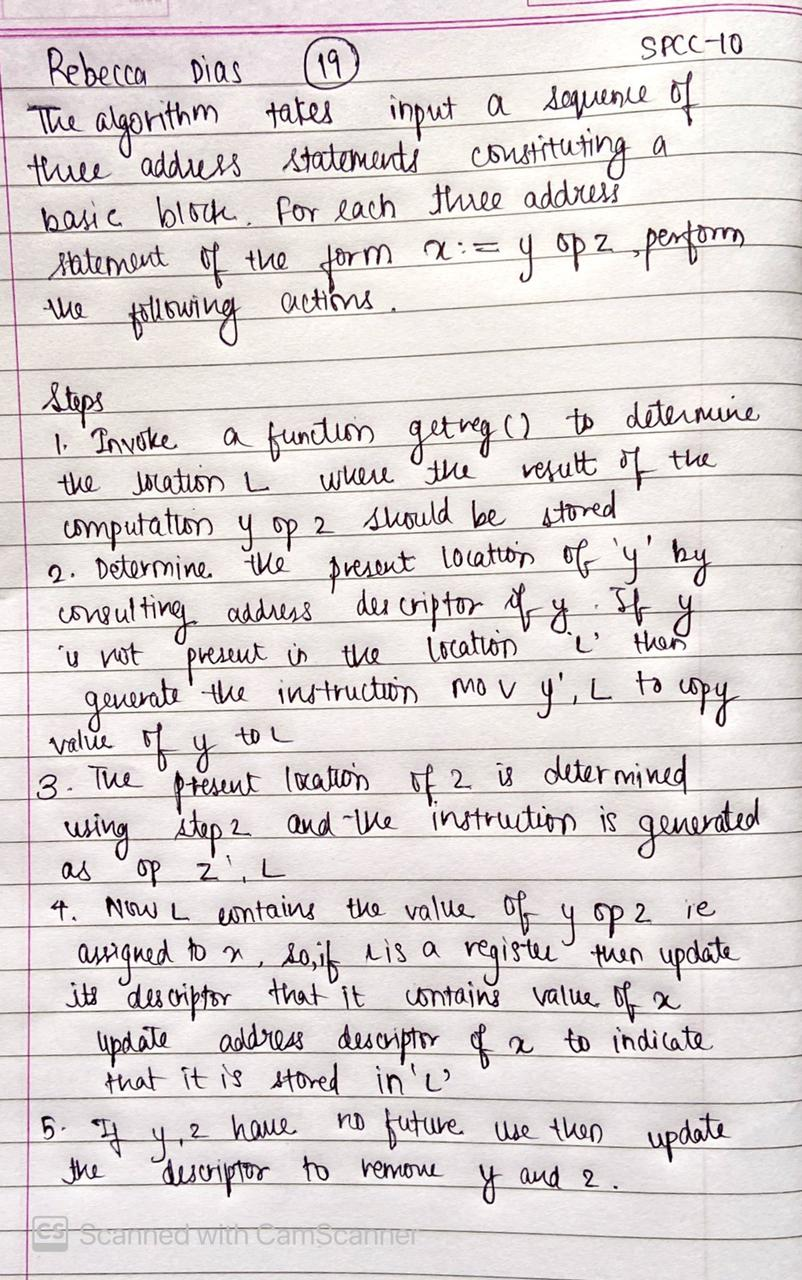 Rebecca Dias 19 SPCC-10
The algorithm takes input a sequence of
three address statements constituting a
basic block. For each three address
statement of the form x:= y op z, perform
the following actions.
Steps
1. Invoke a function getreg() to determine
the location L where the result of the
computation y op z should be stored
2. Determine the present location of 'y' by
consulting address descriptor of y. If y
is not present in the location 'L' then
generate the instruction mov y', L to copy
value of y to L
3. The present location of z is determined
using step 2 and the instruction is generated
as op z', L
4. Now L contains the value of y op z ie
assigned to x, so, if L is a register then update
its descriptor that it contains value of x
update address descriptor of x to indicate
that it is stored in 'L'
5. If y, z have no future use then update
the descriptor to remove y and z.
CS Scanned with CamScanner